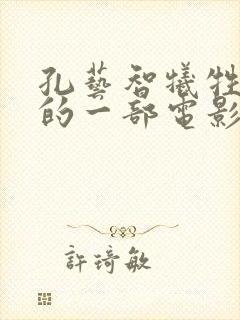 孔藝智犧牲
的一部電影
許琦敏